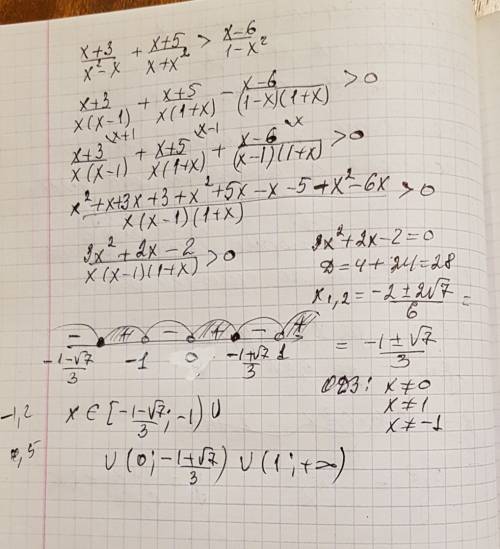 x+3/x²-x + x+5/x+x² > x-6/1-x²
x+3/x(x-1) + x+5/x(1+x) - x-6/(1-x)(1+x) > 0
x+3/x(x-1) \x+1 + x+5/x(1+x) \x-1 + x-6/(x-1)(1+x) \x > 0
x²+x+3x+3+x²+5x-x-5+x²-6x/x(x-1)(1+x) > 0
3x²+2x-2/x(x-1)(1+x) > 0
3x²+2x-2=0
D=4+24=28
x1,2 = -2±2√7/6 =
= -1±√7/3
ОДЗ: x≠0
x≠1
x≠-1
- + - + - +
-1-√7/3 -1 0 -1+√7/3 1
-1,2 x∈[-1-√7/3; -1) ∪
∪ (0; -1+√7/3) ∪ (1; +∞)